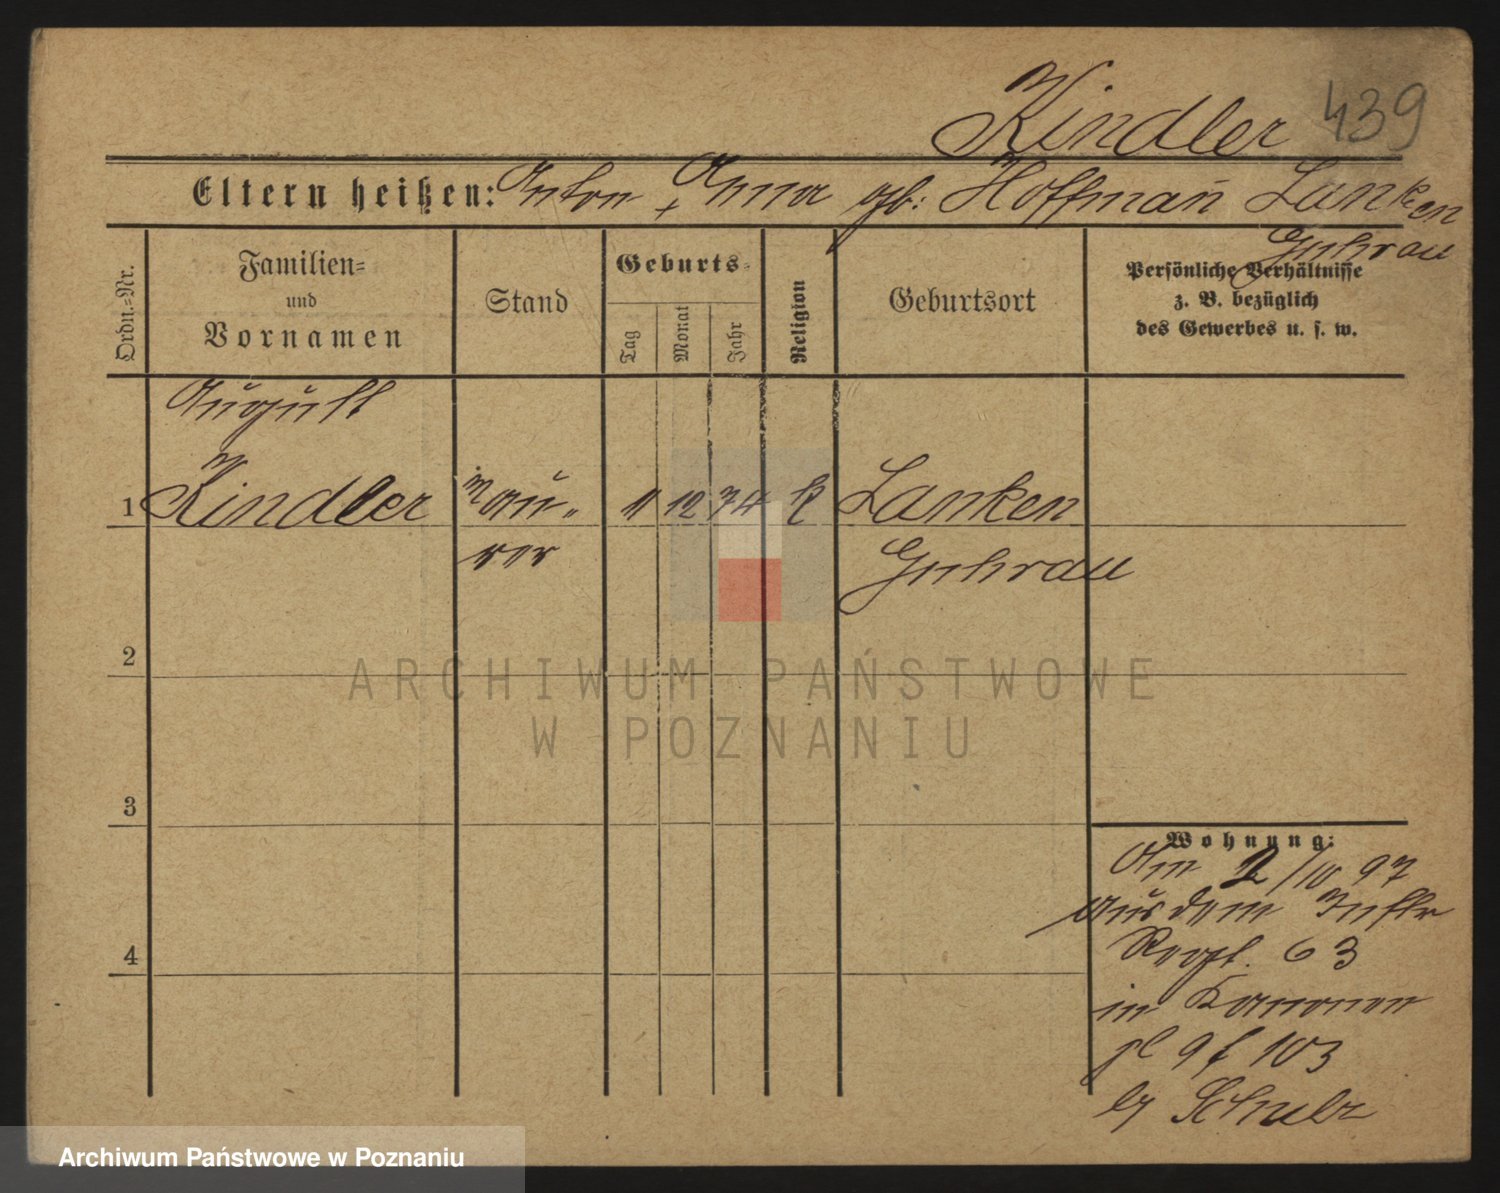 Kindler 439
Eltern heißen: Anton + Anna gb: Hoffman̄ Lanken
Guhrau
Ordn.-Nr.
Familien-
und
Vornamen
Stand
Geburts-
Tag
Monat
Jahr
Religion
Geburtsort
Persönliche Verhältnisse
z. B. bezüglich
des Gewerbes u. s. w.
August
1 Kindler Mau- 11 12 74 k Lanken
rer Guhrau
2
ARCHIWUM PAŃSTWOWE
W POZNANIU
3
Wohnung:
Am 2/10 97
aus dem Inftr
Regt. 63
in Kanonen
pl 9 f 103
by Schulz
4
Archiwum Państwowe w Poznaniu